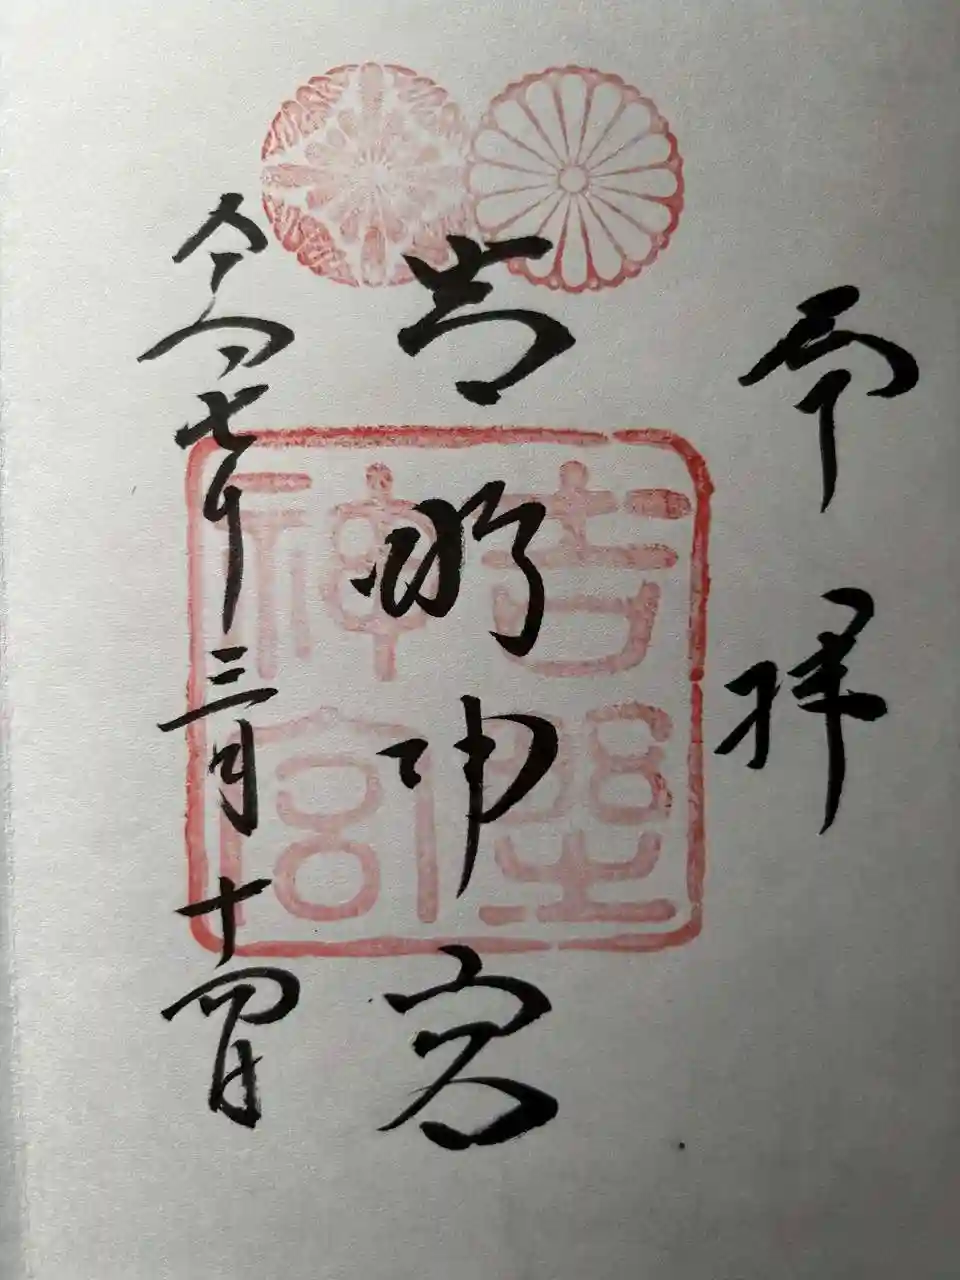 奉拝
吉野神宮
令和七年三月十四日
吉野神宮